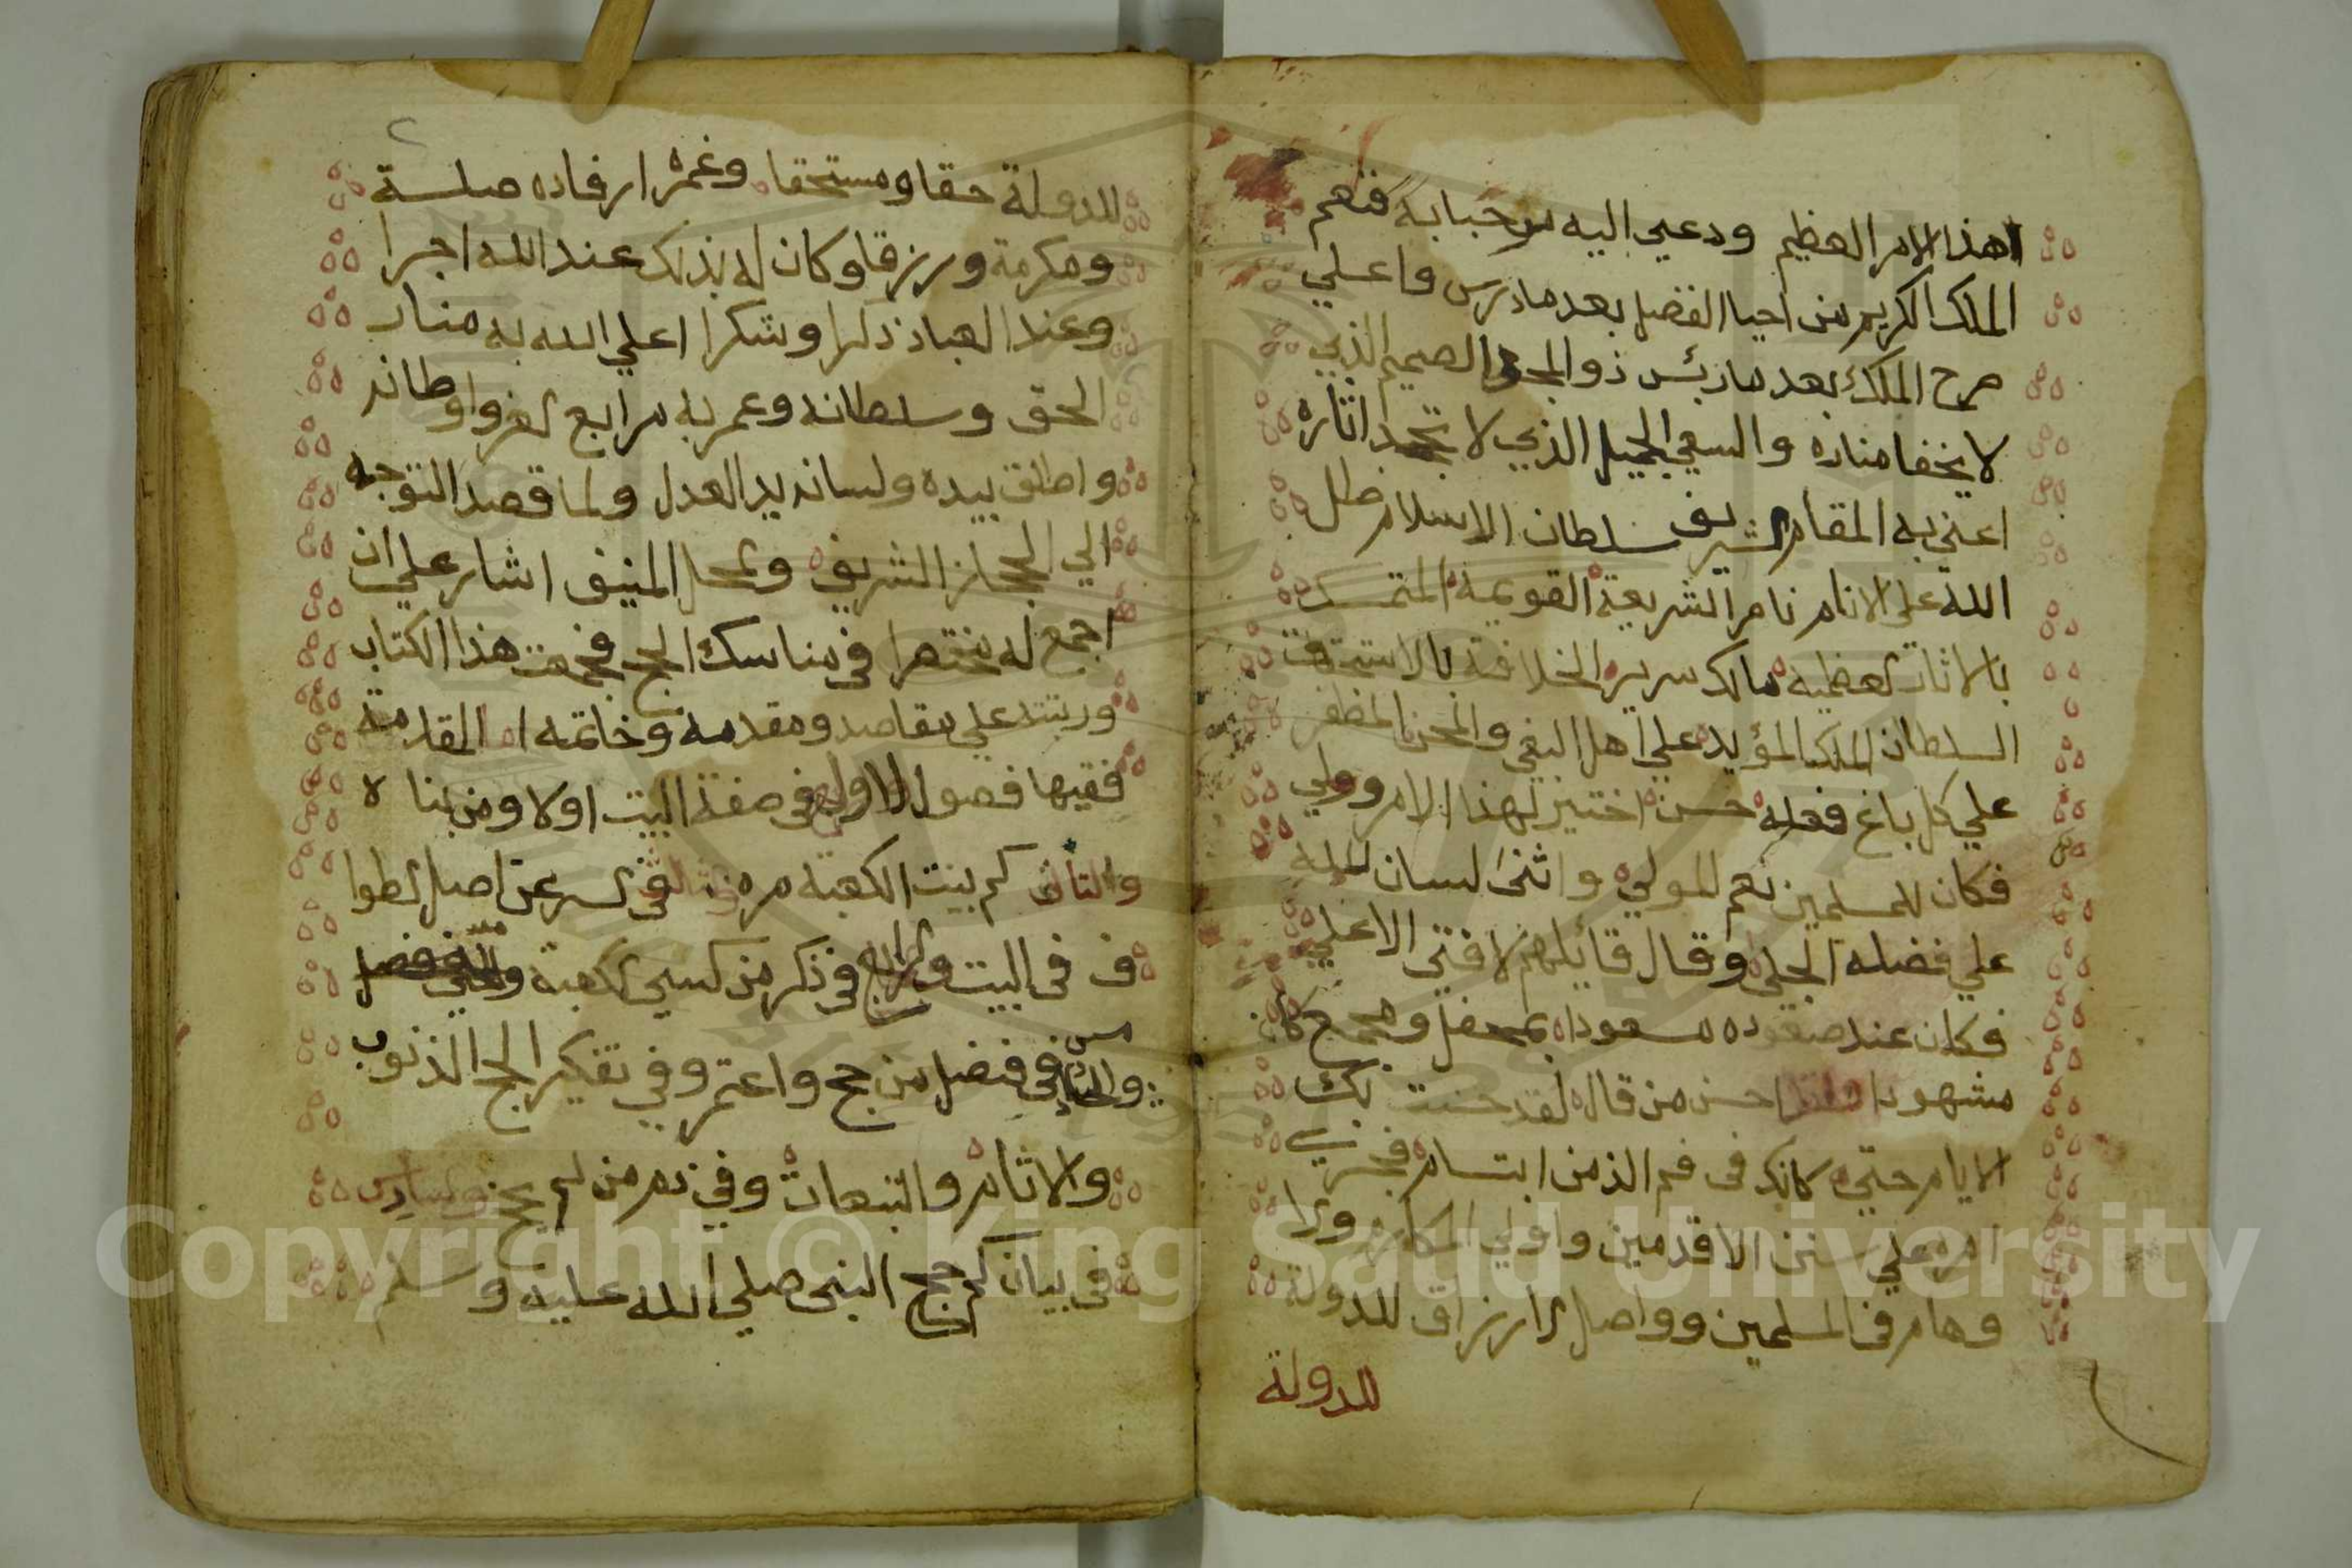 هذا الامر العظيم ودعي اليه فنعم
الملك الكريم من احيا الفضل بعد ما درس واعلي
صرح الملك بعد ما ذو المجد الصميم الذي
لا يخفا مناره والسعي الجميل الذي لا تجحد اثاره
اعني به المقام الشريف سلطان الاسلام ظل
الله علي الانام نامر الشريعة القويمة المتمسك
بالاثار العظيمه مالك سرير الخلافة بالاستحقاق
السلطان الملك المؤيد علي اهل البغي والمظفر
علي كل باغ فعله حسن اختير لهذا الامر وولي
فكان للمسلمين نعم المولي واثني لسان
علي فضله الجلي وقال قائلهم لا فتي الا علي
فكان عند مسعودا بمحفل ومجمع كان
مشهودا احسن من قال لقد حسنت بك
الايام حتي كانك في فم الذمن ابتسام فجري
امره علي سنن الاقدمين واولي المكارم
في المسلمين وواصل الارزاق للدولة
للدولة
للدولة حقا ومستحقا وغمره ارفاده صلسة
ومكرمة ورزقا وكان له بذلك عند الله اجرا
وعند العباد ذكرا وشكرا اعلي الله به منار
الحق وسلطانه وعمر به مرابع العز واوطانه
واطلق بيده ولسانه يد العدل ولما قصد التوجه
الي الحجاز الشريف والمحل المنيف اشار علي ان
اجمع له مختصرا في مناسك الحج فجمعت هذا الكتاب
ورتبته علي مقاصد ومقدمه وخاتمه اما المقدمة
ففيها فصول الاول في صفة البيت اولا ومن بناه
والثاني كم بنيت الكعبة مره الثالث في السر عن اصل الطوا
ف في البيت والرابع في ذكر من كسي الكعبة
والخامس في فضل من حج واعتمر وفي تفكير الحج الذنوب
والاثام والتبعات وفي ذم من لم يحج والسادس
في بيان كم حج النبي صلي الله عليه وسلم
Copyright © King Saud University